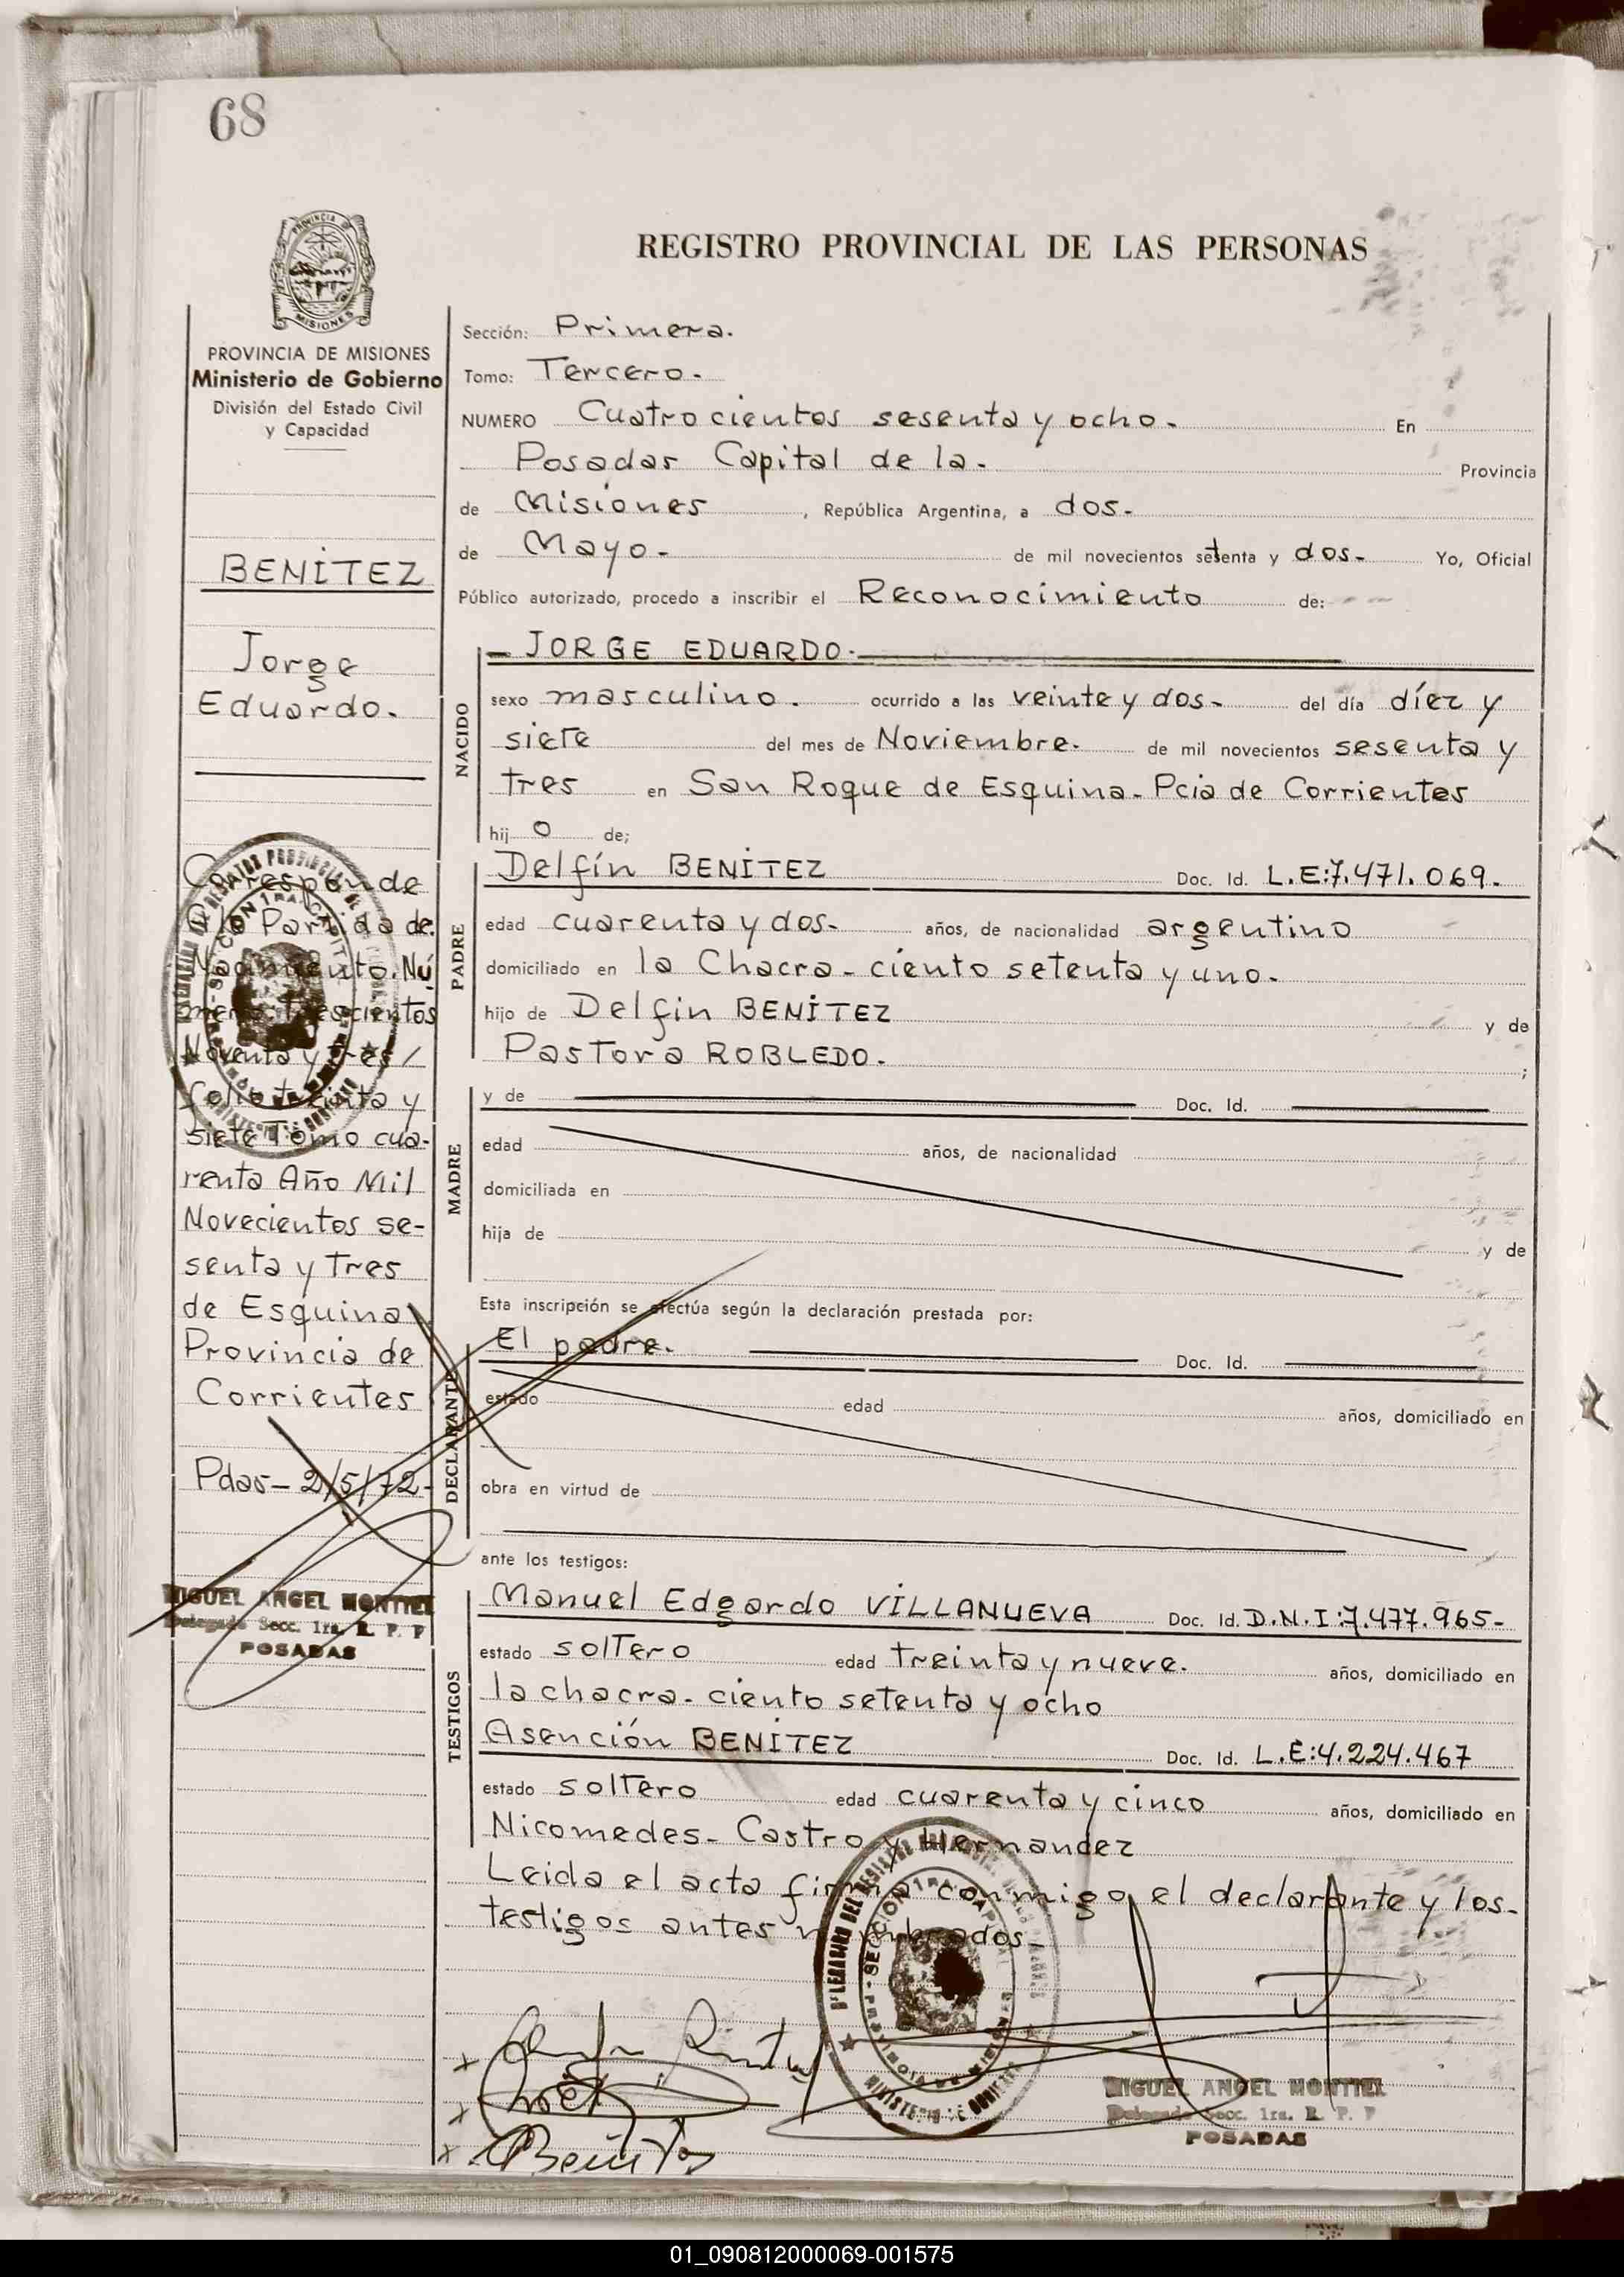 68
PROVINCIA
MISIONES
REGISTRO PROVINCIAL DE LAS PERSONAS
PROVINCIA DE MISIONES
Ministerio de Gobierno
División del Estado Civil
y Capacidad
BENÍTEZ
Jorge
Eduardo.
Corresponde
a la Partida de
Nacimiento. Nú
mero trescientos
Noventa y tres /
folio treinta y
siete Tomo cua-
renta Año Mil
Novecientos se-
senta y tres
de Esquina
Provincia de
Corrientes
Pdas- 2/5/72-
MIGUEL ANGEL MONTIEL
Delegado Secc. 1ra. R. P. P
POSADAS
Sección: Primera.
Tomo: Tercero.
NUMERO Cuatrocientos sesenta y ocho. En
Posadas Capital de la. Provincia
de Misiones , República Argentina, a dos.
de Mayo. de mil novecientos setenta y dos. Yo, Oficial
Público autorizado, procedo a inscribir el Reconocimiento de:
NACIDO
JORGE EDUARDO.
sexo masculino. ocurrido a las veinte y dos. del día díez y
siete del mes de Noviembre. de mil novecientos sesenta y
tres en San Roque de Esquina. Pcia de Corrientes
hij o de;
PADRE
Delfín BENÍTEZ Doc. Id. L.E:7.471.069.
edad cuarenta y dos. años, de nacionalidad argentino
domiciliado en la Chacra - ciento setenta y uno.
hijo de Delfin BENÍTEZ y de
Pastora ROBLEDO. ;
MADRE
y de Doc. Id.
edad años, de nacionalidad
domiciliada en
hija de y de
Esta inscripción se efectúa según la declaración prestada por:
DECLARANTE
El padre. Doc. Id.
estado edad años, domiciliado en
obra en virtud de
ante los testigos:
TESTIGOS
Manuel Edgardo VILLANUEVA Doc. Id. D.N.I:7.477.965-
estado soltero edad treinta y nueve. años, domiciliado en
la chacra - ciento setenta y ocho
Asención BENÍTEZ Doc. Id. L.E:4.224.467
estado soltero edad cuarenta y cinco años, domiciliado en
Nicomedes - Castro y Hernandez
Leida el acta firma conmigo el declarante y los.
testigos antes nombrados.
MIGUEL ANGEL MONTIEL
Delegado Secc. 1ra. R. P. P
POSADAS
01_090812000069-001575